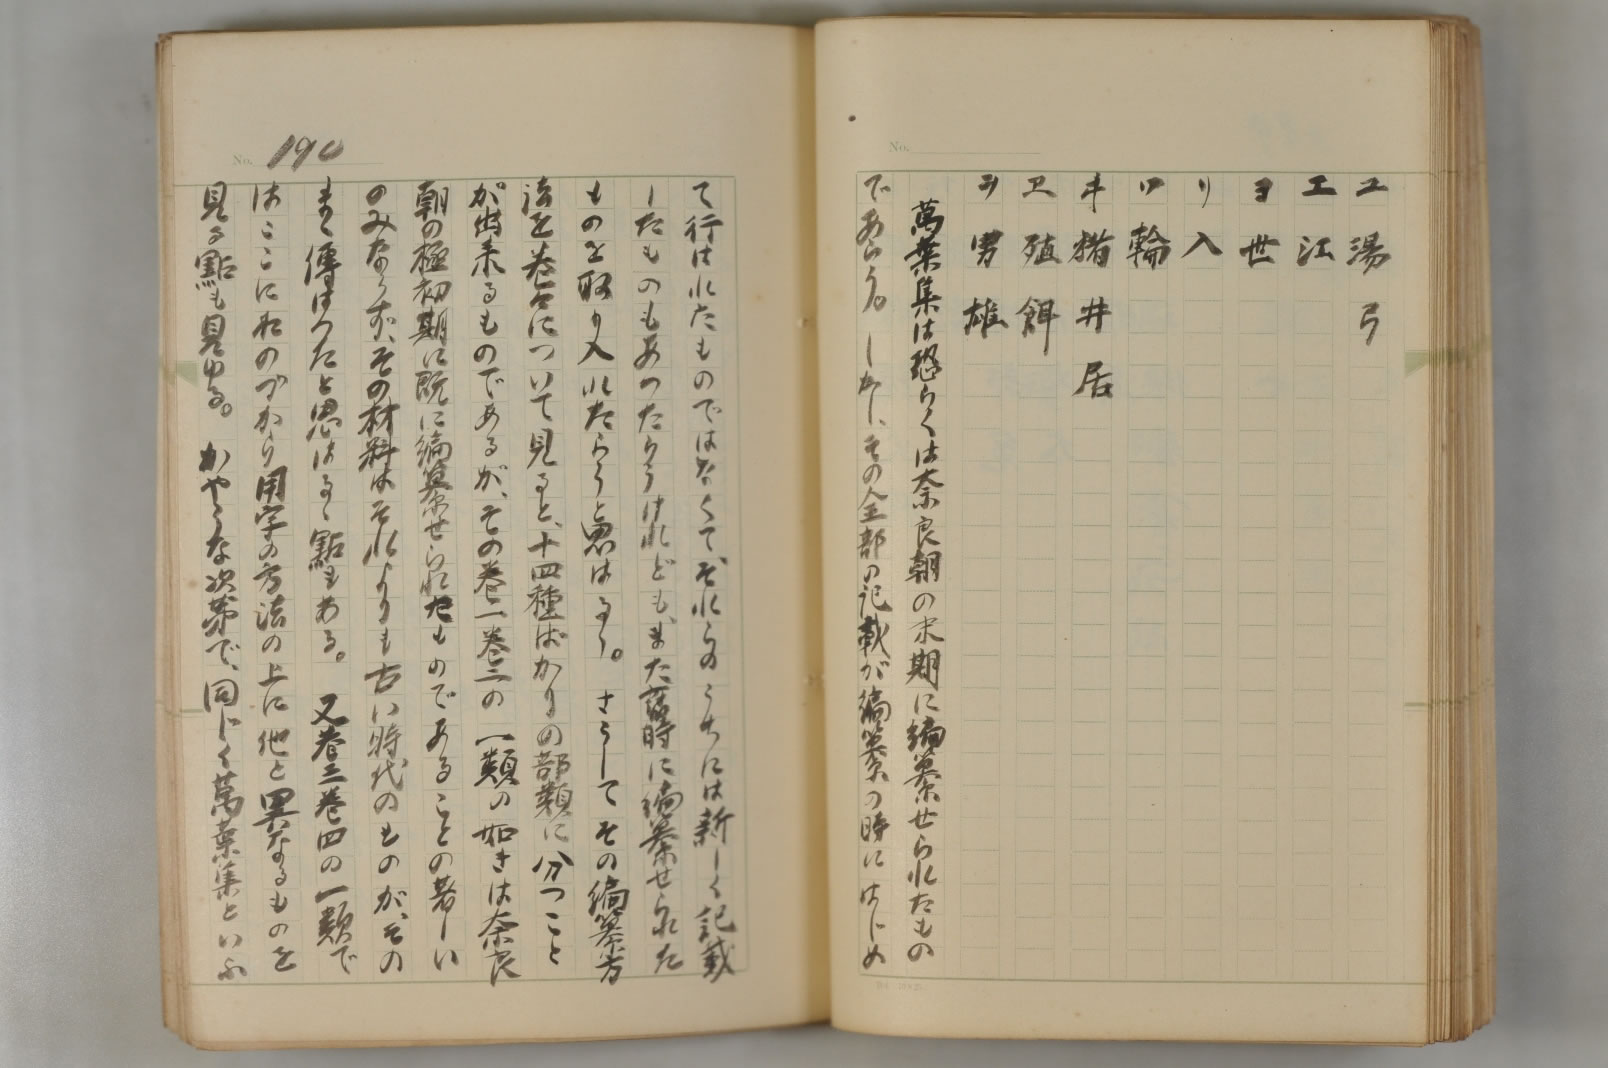 No.
ユ 湯 弓
エ 江
ヨ 世
リ 入
ワ 輪
ヰ 猪 井 居
ヱ 殖 餌
ヲ 男 雄
萬葉集は恐らくは奈良朝の末期に編纂せられたもの
であらう。しかし、その全部の記載が編纂の時にはじめ
No. 190
て行はれたものではなくて、それらのうちには新しく記載
したものもあつたらうけれども、また落時に編纂せられた
ものを取り入れたらうと思はるゝ。さうしてその編纂方
法を巻々について見ると、十四種ばかりの部類に分つこと
が出来るものであるが、その巻一巻二の一類の如きは奈良
朝の極初期に既に編纂せられたものであることの著しい
のみならず、その材料はそれよりも古い時代のものが、その
まゝ傳はつたと思はるゝ點もある。又巻三巻四の一類で
はここにおのづから用字の方法の上に他と異なるものを
見る點も見ゆる。かやうな次第で、同じく萬葉集といふ